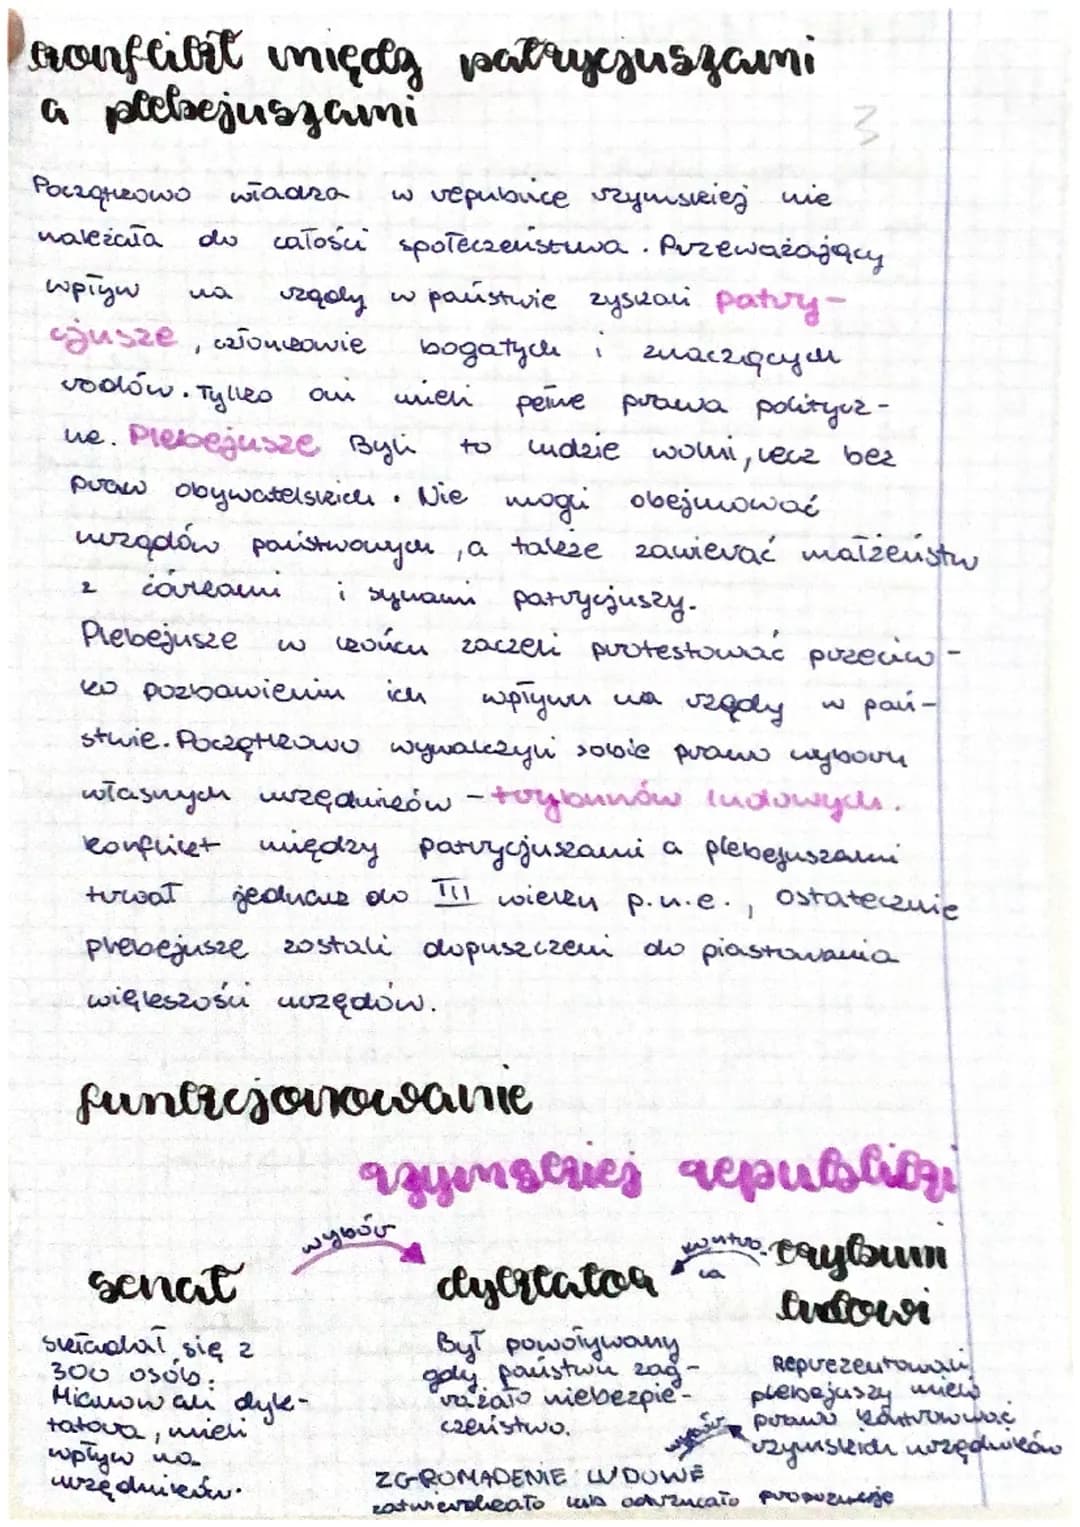 konflikt między patrycjuszami
a plebejuszami
3
Początkowo władza w republice rzymskiej nie
należała do całości społeczeństwa. Przeważający
wpływ na rządy w państwie zyskali patry-
cjusze, członkowie bogatych i znaczących
rodów. Tylko oni mieli pełne prawa politycz-
ne. Plebejusze Byli to ludzie wolni, lecz bez
praw obywatelskich. Nie mogli obejmować
urzędów państwowych, a także zawierać małżeństw
z córkami i synami patrycjuszy.
Plebejusze w końcu zaczęli protestować przeciw-
ko pozbawieniu ich wpływu na rządy w pań-
stwie. Początkowo wywalczyli sobie prawo wyboru
własnych urzędników - trybunów ludowych.
Konflikt między patrycjuszami a plebejuszami
trwał jednak do III wieku p.n.e., ostatecznie
plebejusze zostali dopuszczeni do piastowania
większości urzędów.
funkcjonowanie
rzymskiej republiki
wybór
kontro-
la
senat
dyktator
trybuni
ludowi
składał się z
300 osób.
Mianowali dyk-
tatora, mieli
wpływ na
urzędników.
Był powoływany
gdy państwu zag-
rażało niebezpie-
czeństwo.
Reprezentowali
plebejuszy mieli
prawo kontrolować
rzymskich urzędników
wybór
ZGROMADENIE LUDOWE
zatwierdzało lub odrzucało propozycje